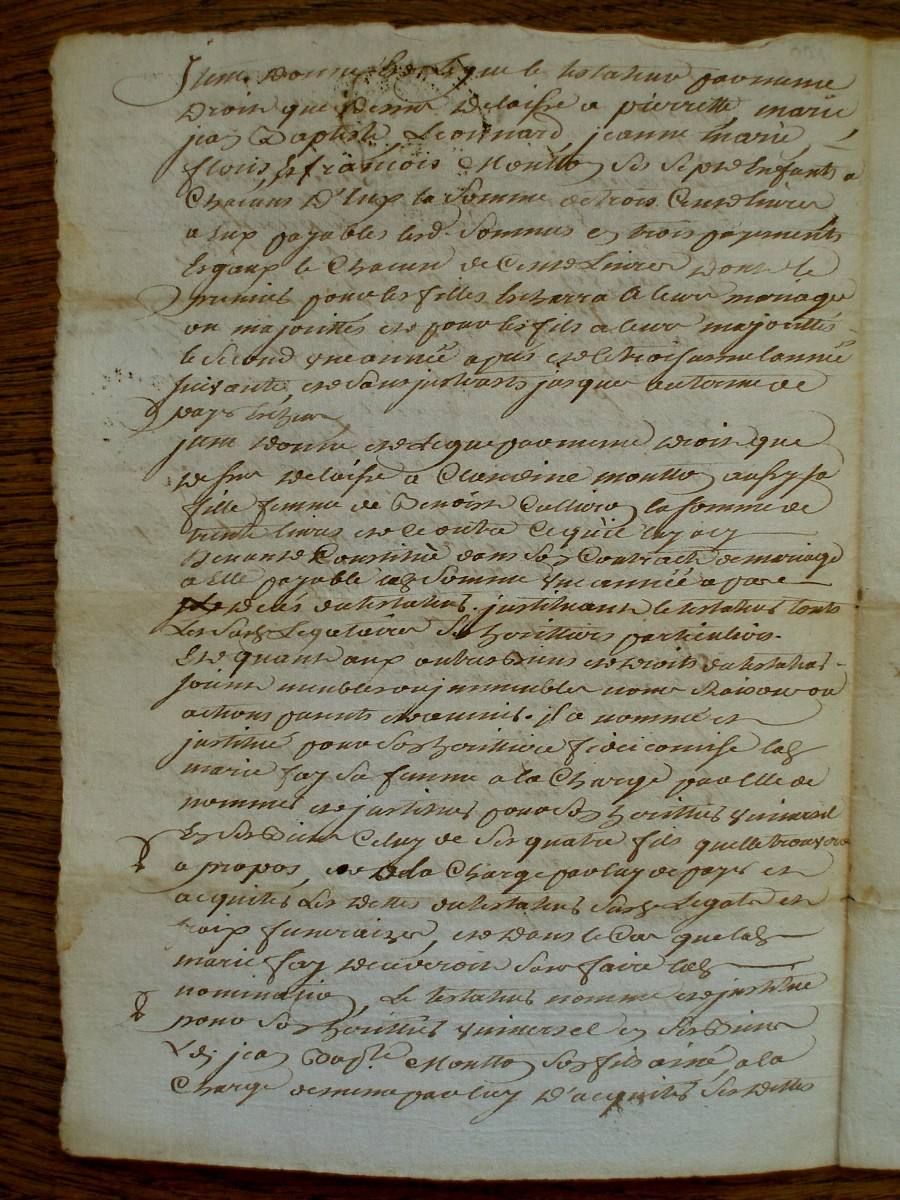 Item donne et legue le testateur par meme
droit que dessus delaisse a pierrette, marie
jean Baptiste Leonnard, jeanne marie,
flouis et francois Moutto ses sept enfants a
Chacuns D'Eux la Somme de trois Cent livres
a Eux payables lesd. Sommes en trois payements
Egaux le Chacun de Cent Livres dont le
premier pour les filles Echerra a leur mariage
ou majorittés et pour les fils a leur majorittés
le Second une année apres et le troisieme lannée
Suivante, et sans jnterests jusques au terme de
pays Escheu
jtem donne et Legue par meme droit que
dessus delaisse a Claudine moutto aussy sa
fille femme de Benoist Cullier la somme de
trente livres et ce outre ce qu'il luy a cy
devant Constitué dans son Contract de mariage
a Elle payable lad. Somme une année apres
le deces du testateur. jnstituant le testateur touts
Les Susd. Legataires Ses heritiers particuliers.
Et quant aux autres Biens et droits du testateur
soient meubles ou jmmeubles noms Raisons ou
actions presents et avenir. il a nommé et
jnstitué pour son heritiere fideicomise lad.
marie fay Sa femme a la Charge par Elle de
nommer et jnstituer pour son heritier universel
En Ses Biens Celuy de Ses quatre fils quelle trouvera
a propos, et a la Charge par luy de payer et
acquiter Les dettes du testateur Susd. Legats et
fraix funeraires, et dans le Cas que lad.
marie fay decederoit Sans faire lad.
nomination, Le testateur nomme et jnstitue
pour Son heritier universel en Ses Biens
Led. jean Bapte. Moutto Son fils ainé, a la
Charge de meme par luy D'acquiter Ses dettes